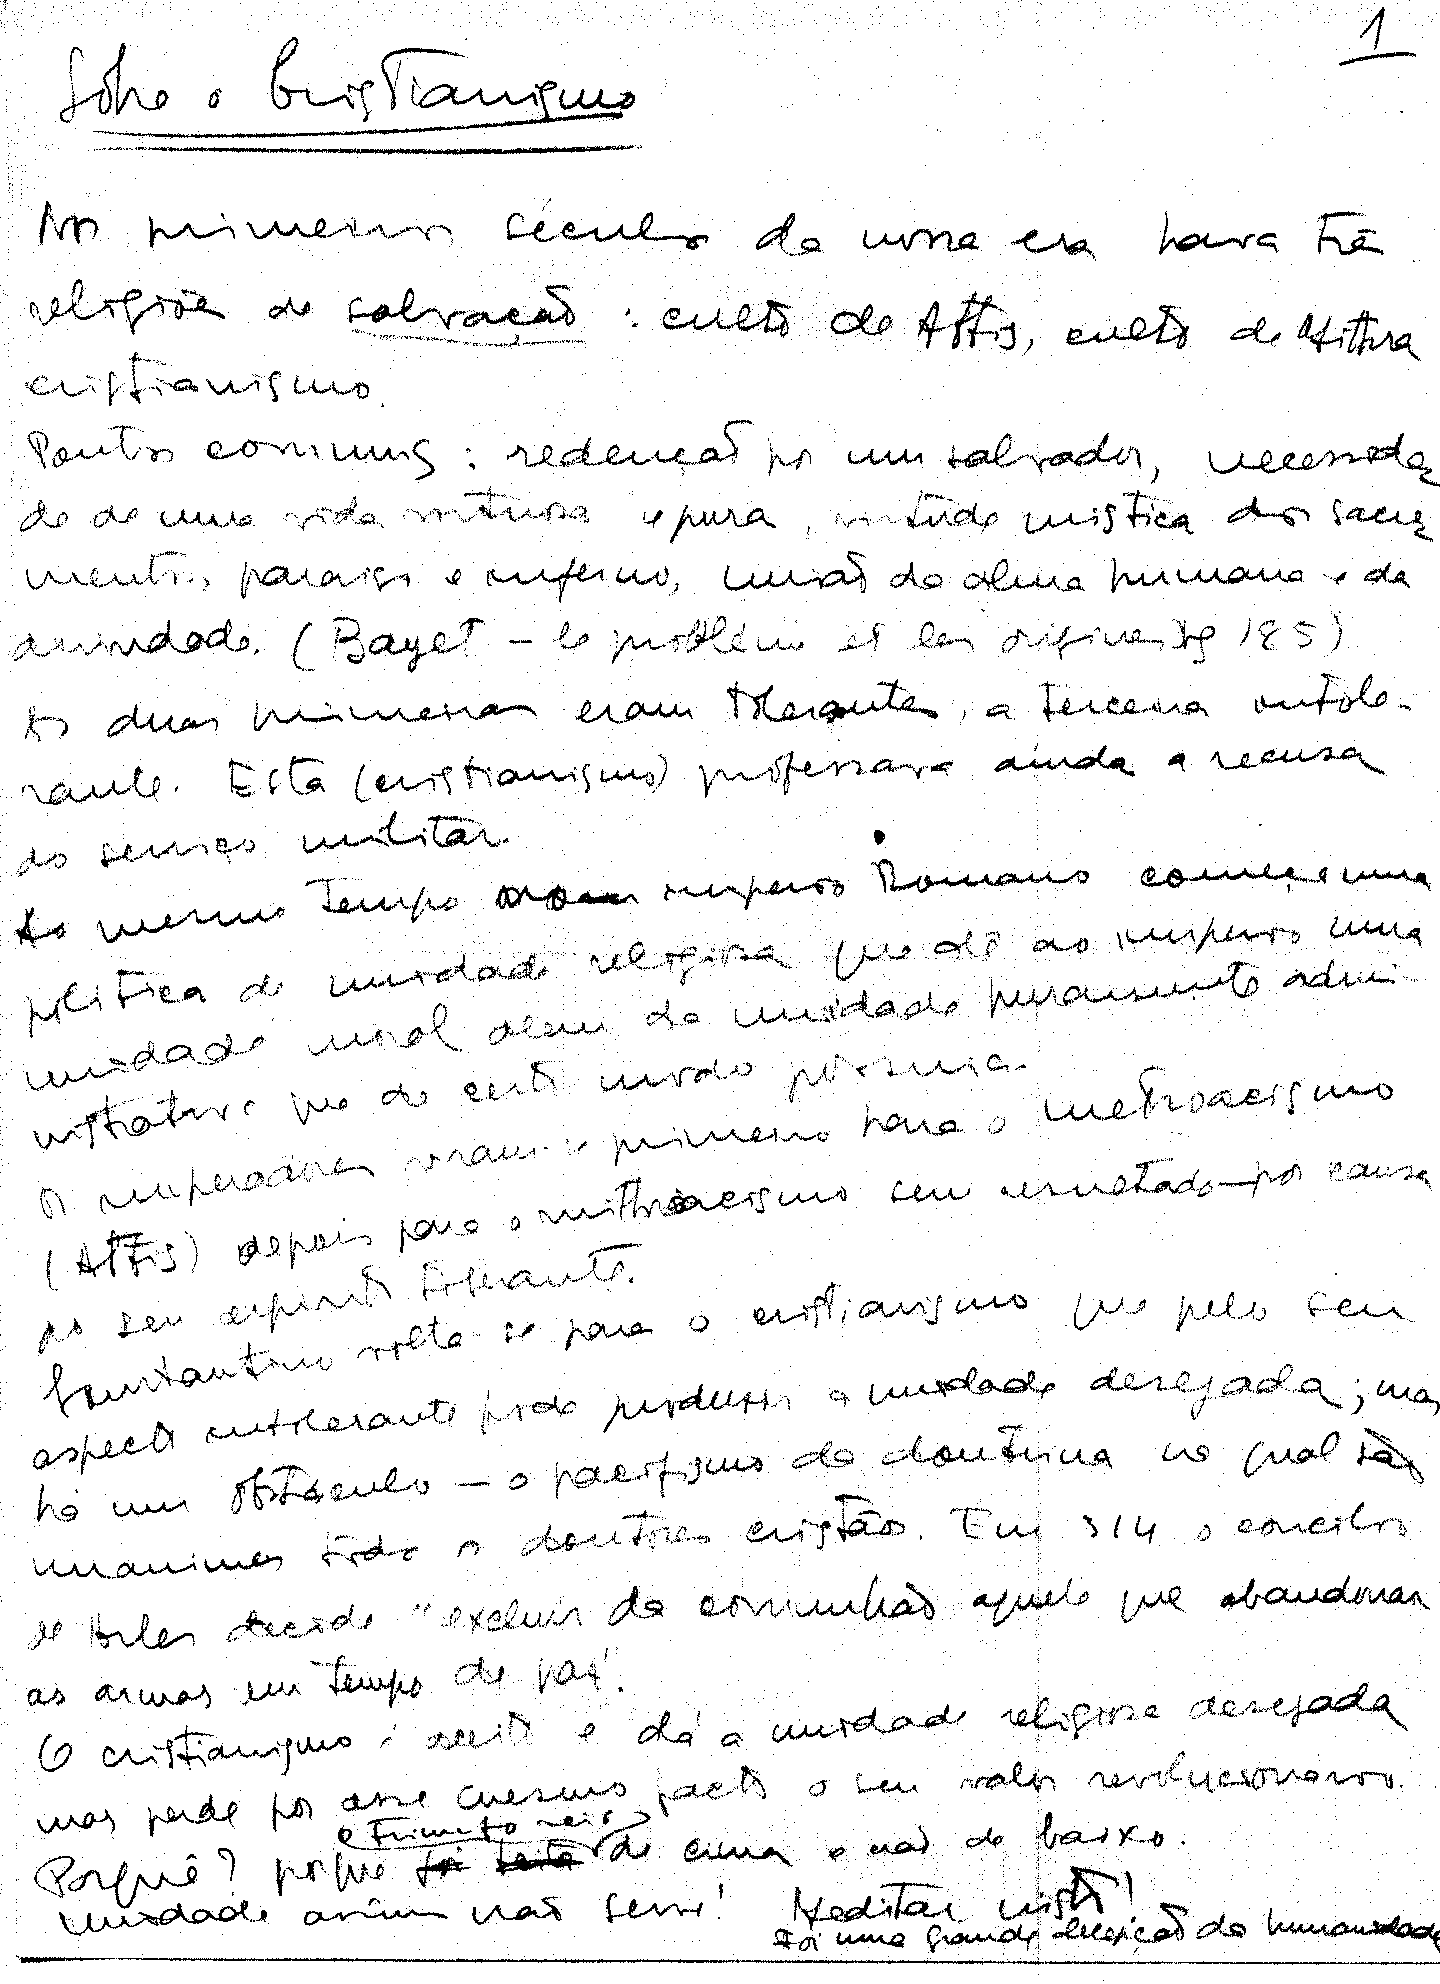 1
Sobre o Cristianismo
Nos primeiros séculos da nossa era havia três
religiões de salvação: culto de Attis, culto de Mitra
cristianismo.
Pontos comuns: redenção por um salvador, necessida
de de uma vida virtuosa e pura, virtude mística dos sacra
mentos, paraiso e inferno, união da alma humana e da
divindade. (Bayet – le problème et les origines pg 185)
As duas primeiras eram tolerantes, a terceira intole-
rante. Esta (cristianismo) professava ainda a recusa
do serviço militar.
Ao mesmo tempo o imperio Romano começa uma
politica de unidade religiosa que dê ao imperio uma
unidade moral alem da unidade puramente admi-
nistrativa que de certo modo possuia.
Os imperadores viram-se primeiro para o metroacismo
(Attis) depois para o mithriacismo sem resultado por causa
do seu espirito tolerante.
Constantino volta-se para o cristianismo que pelo seu
aspecto intolerante pode produzir a unidade desejada; mas
há um obstaculo – o pacifismo da doutrina no qual são
unanimes todos os doutores cristãos. Em 314 o concilio
de Arles decide "excluir da comunhão aquele que abandonar
as armas em tempo de paz".
O cristianismo é aceite e dá a unidade religiosa desejada
mas perde por esse mesmo facto o seu valor revolucionario.
e triunfo veio
Porquê? porque foi de cima e não de baixo.
Unidade assim não serve! Meditar nisto!
Foi uma grande decepção da humanidade